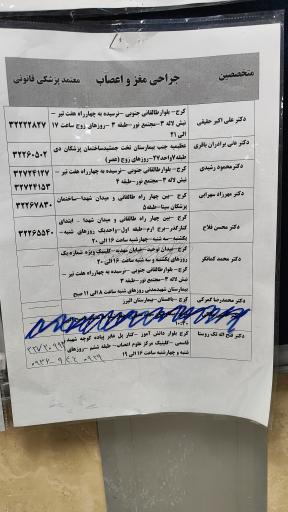 متخصصین جراحی مغز و اعصاب معتمد پزشکی قانونی
دکتر علی اکبر حقیقی
کرج- بلوارطالقانی جنوبی -نرسیده به چهارراه هفت تیر -
نبش لاله ۳-مجتمع نور-طبقه ۳ -روزهای زوج ساعت ۱۷
الی ۲۱
۳۲۲۲۲۸۲۷
دکتر علی برادران باقری
عظیمیه جنب بیمارستان تخت جمشیدساختمان پزشکان دی
طبقه۷واحد۲۷-روزهای زوج (عصر)
۳۲۲۶۰۵۰۲
دکترمحمود رشیدی
کرج- بلوارطالقانی جنوبی -نرسیده به چهارراه هفت تیر -
نبش لاله ۳-مجتمع نور-طبقه ۴
۳۲۷۲۴۱۲۷
۳۲۷۲۴۱۵۳
دکتر مهرزاد سهرابی
کرج -بین چهار راه طالقانی و میدان شهدا-ساختمان
پزشکان سینا-طبقه۵
۳۲۲۶۷۸۳۰
دکتر محسن فلاح
کرج -بین چهار راه طالقانی و میدان شهدا - ابتدای
گذار-برج ارم- طبقه اول-واحدیک -روزهای شنبه-
یکشنبه-سه شنبه -چهارشنبه ساعت ۱۶ الی ۲۰
۳۲۲۶۵۵۴۰
دکتر محمد کمانگر
کرج-میدان توحید-خیابان مهدیه-کلینیک ویژه شماره یک
روزهای یکشنبه و سه شنبه ساعت ۱۶ الی ۲۰
کرج- بلوارطالقانی جنوبی -نرسیده به چهارراه هفت تیر -
نبش لاله ۳-مجتمع نور-طبقه ۳
بیمارستان شهیدمدنی روزهای شنبه ساعت ۸ الی ۱۱ صبح
دکتر محمدرضا گمرکی
کرج -باغستان -بیمارستان البرز
دکتر فتح اله تک روستا
کرج بلوار دانش آموز -کنار پل عابر پیاده کوچه شهید
قاسمی -کلینیک مرکز علوم اعصاب -طبقه ششم -روزهای
شنبه و چهارشنبه ساعت ۱۶ الی ۱۹